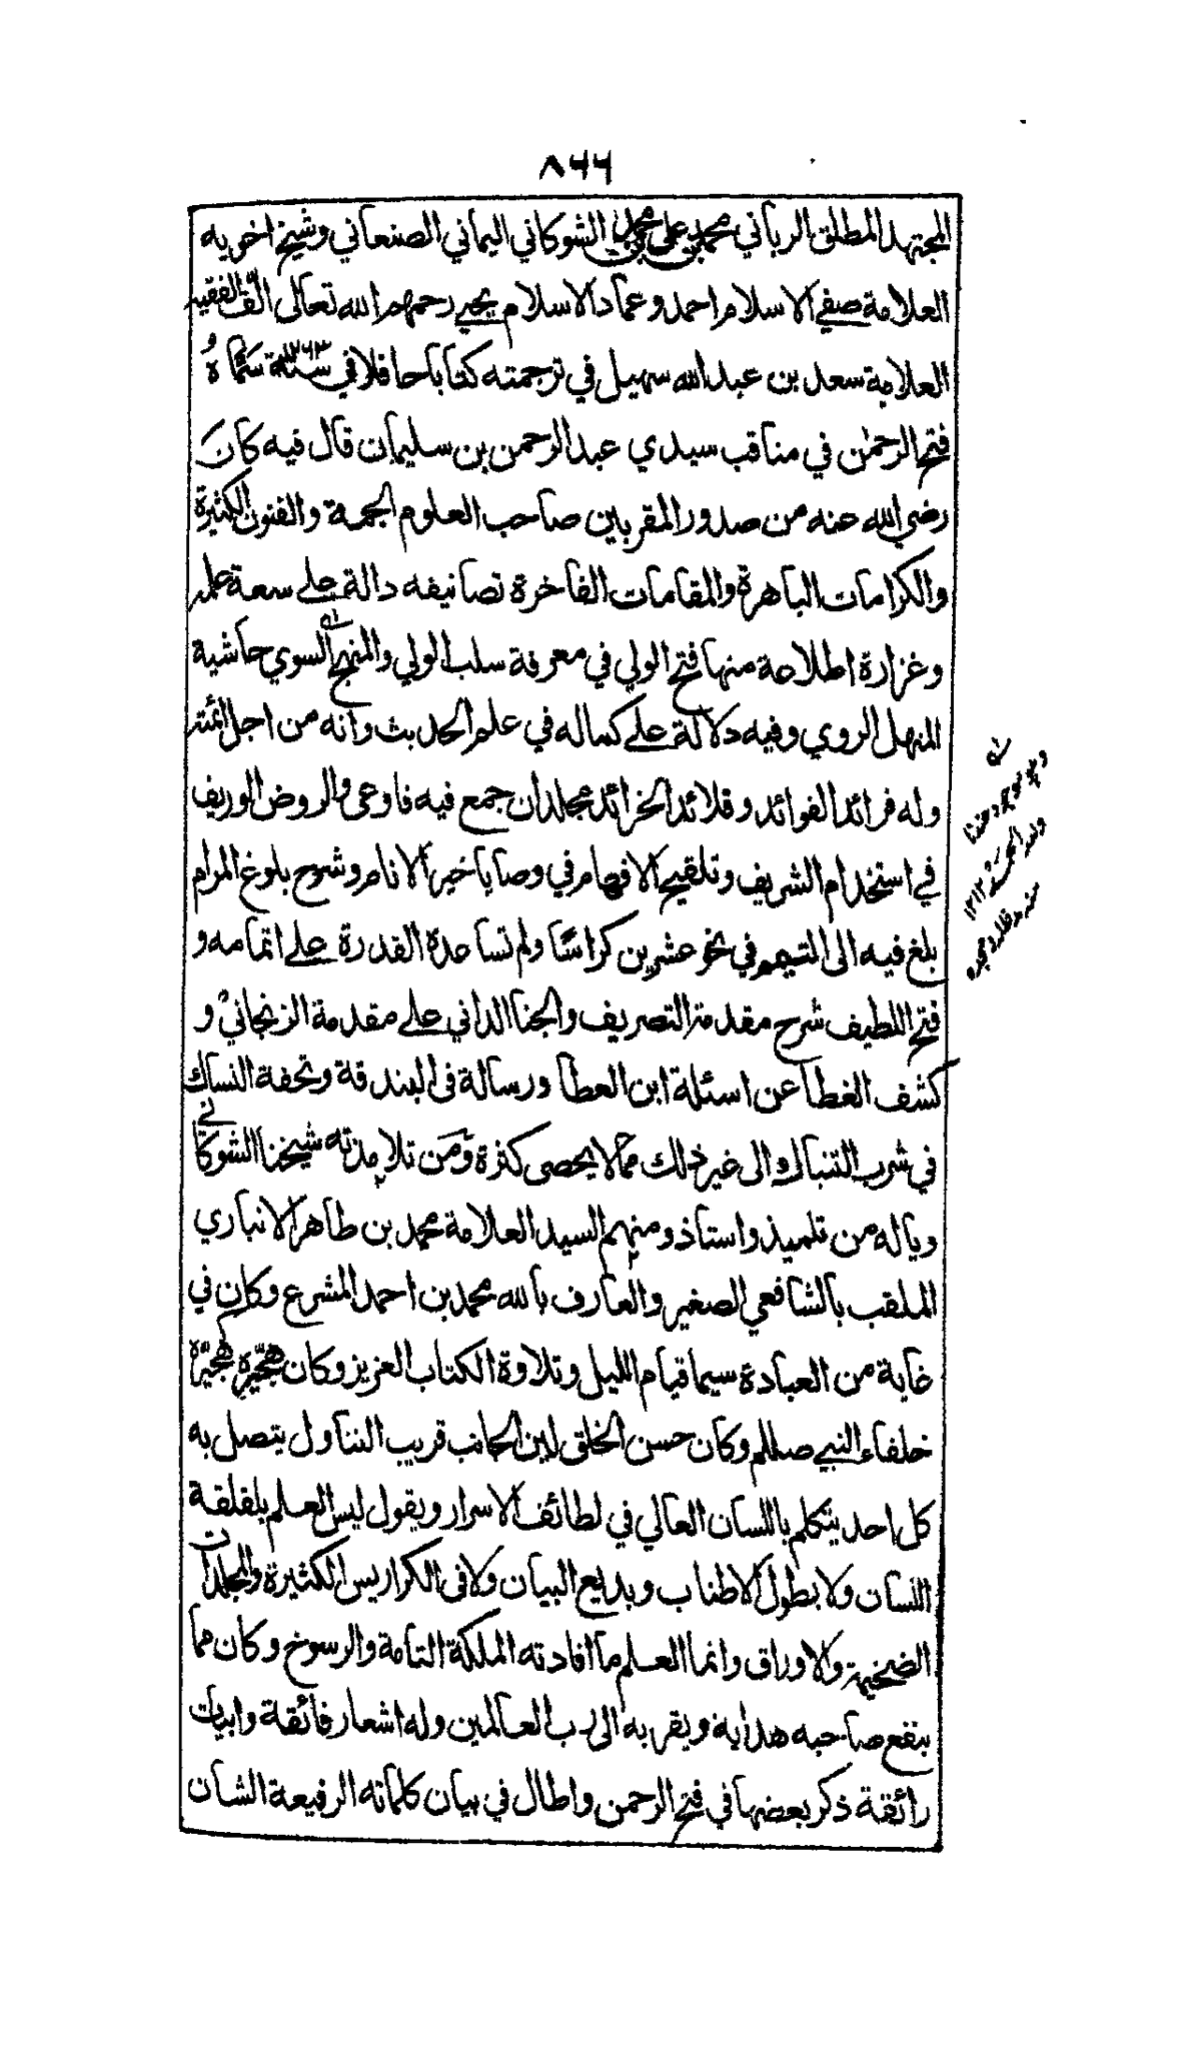 ٨٦٦
المجتهد المطلق الرباني محمد بن علي بن محمد الشوكاني اليماني الصنعاني وشيخ اخويه
العلامة صفي الاسلام احمد وعماد الاسلام يحيى رحمهم الله تعالى الف الفقيه
العلامة سعد بن عبدالله سهيل في ترجمته كتابا حافلا في سنة ١٢٦٣ سماه
فتح الرحمن في مناقب سيدي عبدالرحمن بن سليمان قال فيه كان
رضي الله عنه من صدور المقربين صاحب العلوم الجمة والفنون الكثيرة
والكرامات الباهرة والمقامات الفاخرة تصانيفه دالة على سعة علمه
وغزارة اطلاعه منها فتح الولي في معرفة سلب الولي والمنهج السوي حاشية
المنهل الروي وفيه دلالة على كماله في علم الحديث وانه من اجل ائمته
وله فرائد الفوائد وقلائد الخرائد مجلدان جمع فيه فاوعى والروض الوريف
في استخدام الشريف وتلقيح الافهام في وصايا خير الانام وشرح بلوغ المرام
بلغ فيه الى التيمم في نحو عشرين كراسا ولم تساعده القدرة على اتمامه و
فتح اللطيف شرح مقدمة التصريف والجنا الداني على مقدمة الزنجاني و
كشف الغطا عن اسئلة ابن العطا ورسالة في البندقة وتحفة النساك
في شرب التنباك والى غير ذلك مما لا يحصى كثرة ومن تلامذته شيخنا الشوكاني
وياله من تلميذ واستاذ ومنهم السيد العلامة محمد بن طاهر الانباري
الملقب بالشافعي الصغير والعارف بالله محمد بن احمد المشرع وكان في
غاية من العبادة سيما قيام الليل وتلاوة الكتاب العزيز وكان هجيره هجيرة
خلفاء النبي صللم وكان حسن الخلق لين الجانب قريب التناول يتصل به
كل احد يتكلم باللسان العالي في لطائف الاسرار ويقول ليس العلم بلقلقة
اللسان ولا بطول الاطناب وبديع البيان ولا في الكراريس الكثيرة والمجلدات
الضخيمة والاوراق وانما العلم ما افادته الملكة التامة والرسوخ وكان مما
ينفع صاحبه هداية ويقربه الى رب العالمين وله اشعار فائقة وابيات
رائقة ذكر بعضها في فتح الرحمن واطال في بيان كلماته الرفيعة الشان
وهو موجود عندنا
ولله الحمد ١٢١٢
منه مد ظله